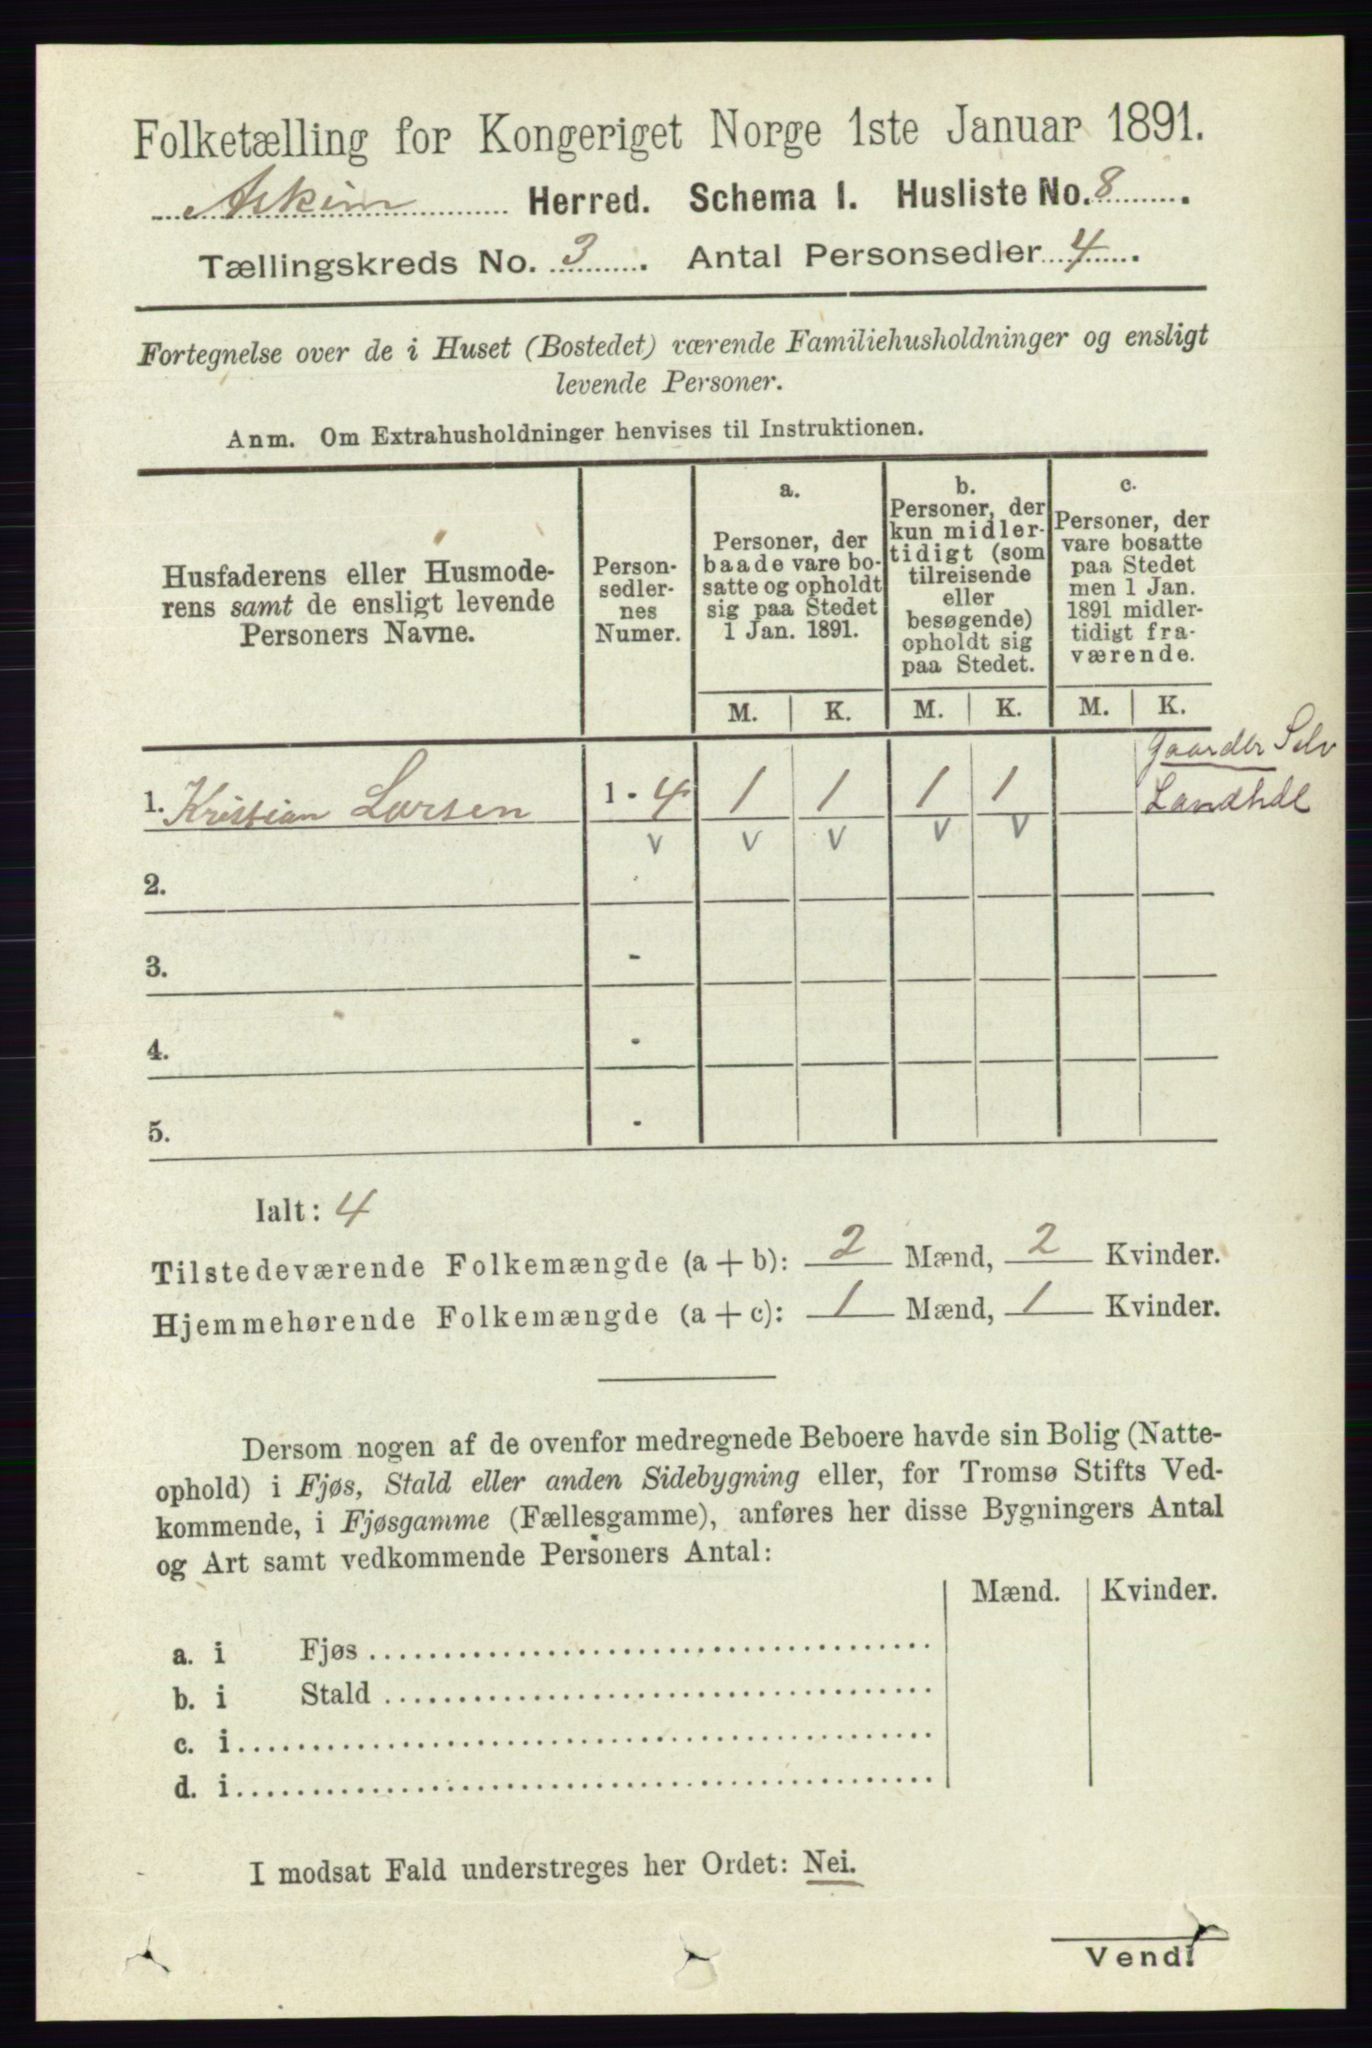 Folketælling for Kongeriget Norge 1ste Januar 1891.
Askim Herred. Schema 1. Husliste No. 8.
Tællingskreds No. 3. Antal Personsedler 4.
Fortegnelse over de i Huset (Bostedet) værende Familiehusholdninger og ensligt
levende Personer.
Anm. Om Extrahusholdninger henvises til Instruktionen.
Husfaderens eller Husmode-
rens samt de ensligt levende
Personers Navne.
Person-
sedler-
nes
Numer.
a.
Personer, der
baade vare bo-
satte og opholdt
sig paa Stedet
1 Jan. 1891.
b.
Personer, der
kun midler-
tidigt (som
tilreisende
eller
besøgende)
opholdt sig
paa Stedet.
c.
Personer, der
vare bosatte
paa Stedet
men 1 Jan.
1891 midler-
tidigt fra-
værende.
M. K. M. K. M. K.
Gaardbr Selv
1. Kristian Larsen 1 - 4 1 1 1 1 Landhdl
v v v v v
2. -
3. -
4. -
5. -
Ialt: 4
Tilstedeværende Folkemængde (a + b): 2 Mænd, 2 Kvinder.
Hjemmehørende Folkemængde (a + c): 1 Mænd, 1 Kvinder.
Dersom nogen af de ovenfor medregnede Beboere havde sin Bolig (Natte-
ophold) i Fjøs, Stald eller anden Sidebygning eller, for Tromsø Stifts Ved-
kommende, i Fjøsgamme (Fællesgamme), anføres her disse Bygningers Antal
og Art samt vedkommende Personers Antal:
Mænd. Kvinder.
a. i Fjøs
b. i Stald
c. i
d. i
I modsat Fald understreges her Ordet: Nei.
Vend!